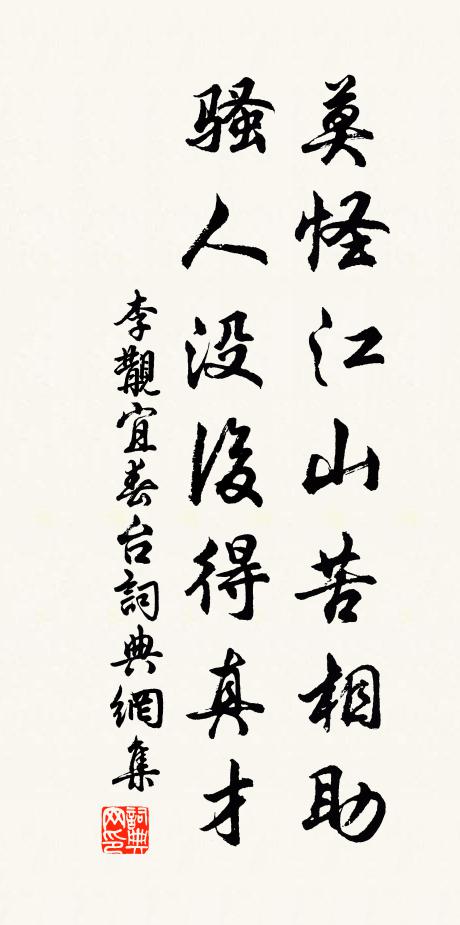 莫怪江山苦相助
騷人没後得真才
李觀宜春台詞典網集
詞典網印